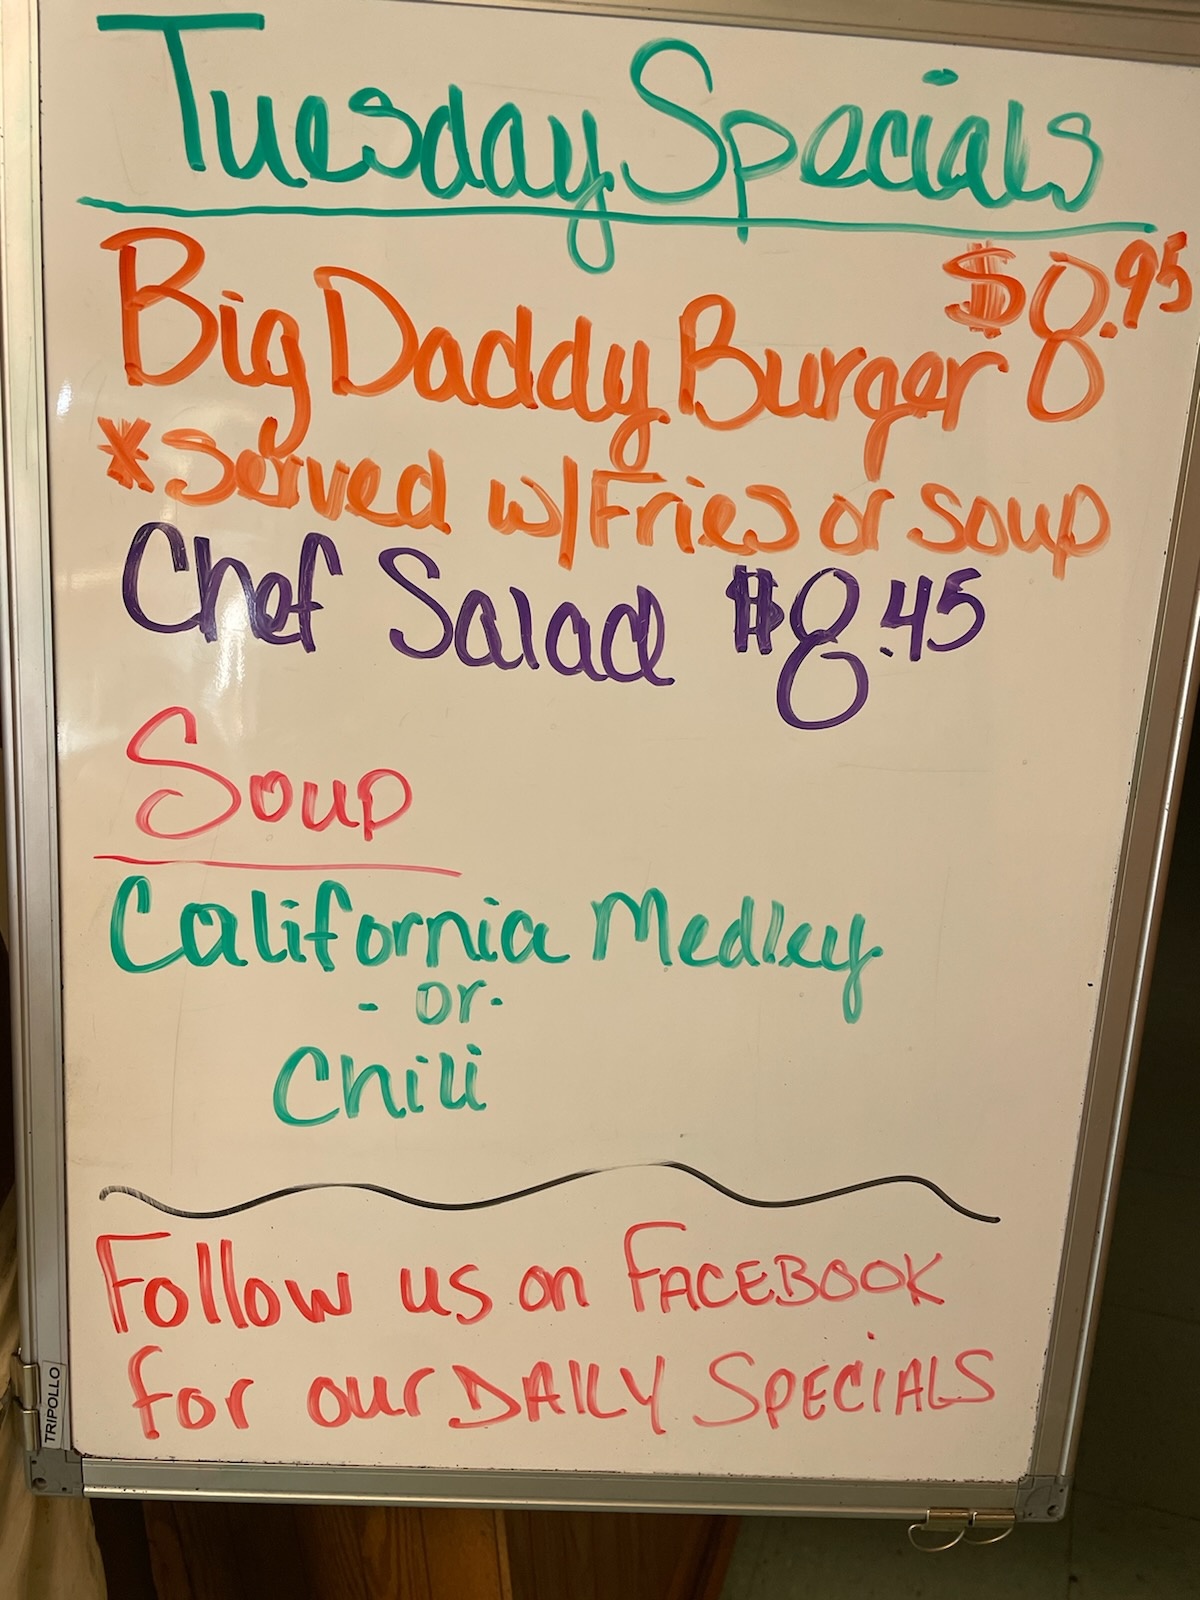 Tuesday Specials
Big Daddy Burger $8.95
*Served w/Fries or soup
Chef Salad $8.45
Soup
California Medley
- or -
Chili
Follow us on FACEBOOK
for our DAILY SPECIALS
TRIPOLLO